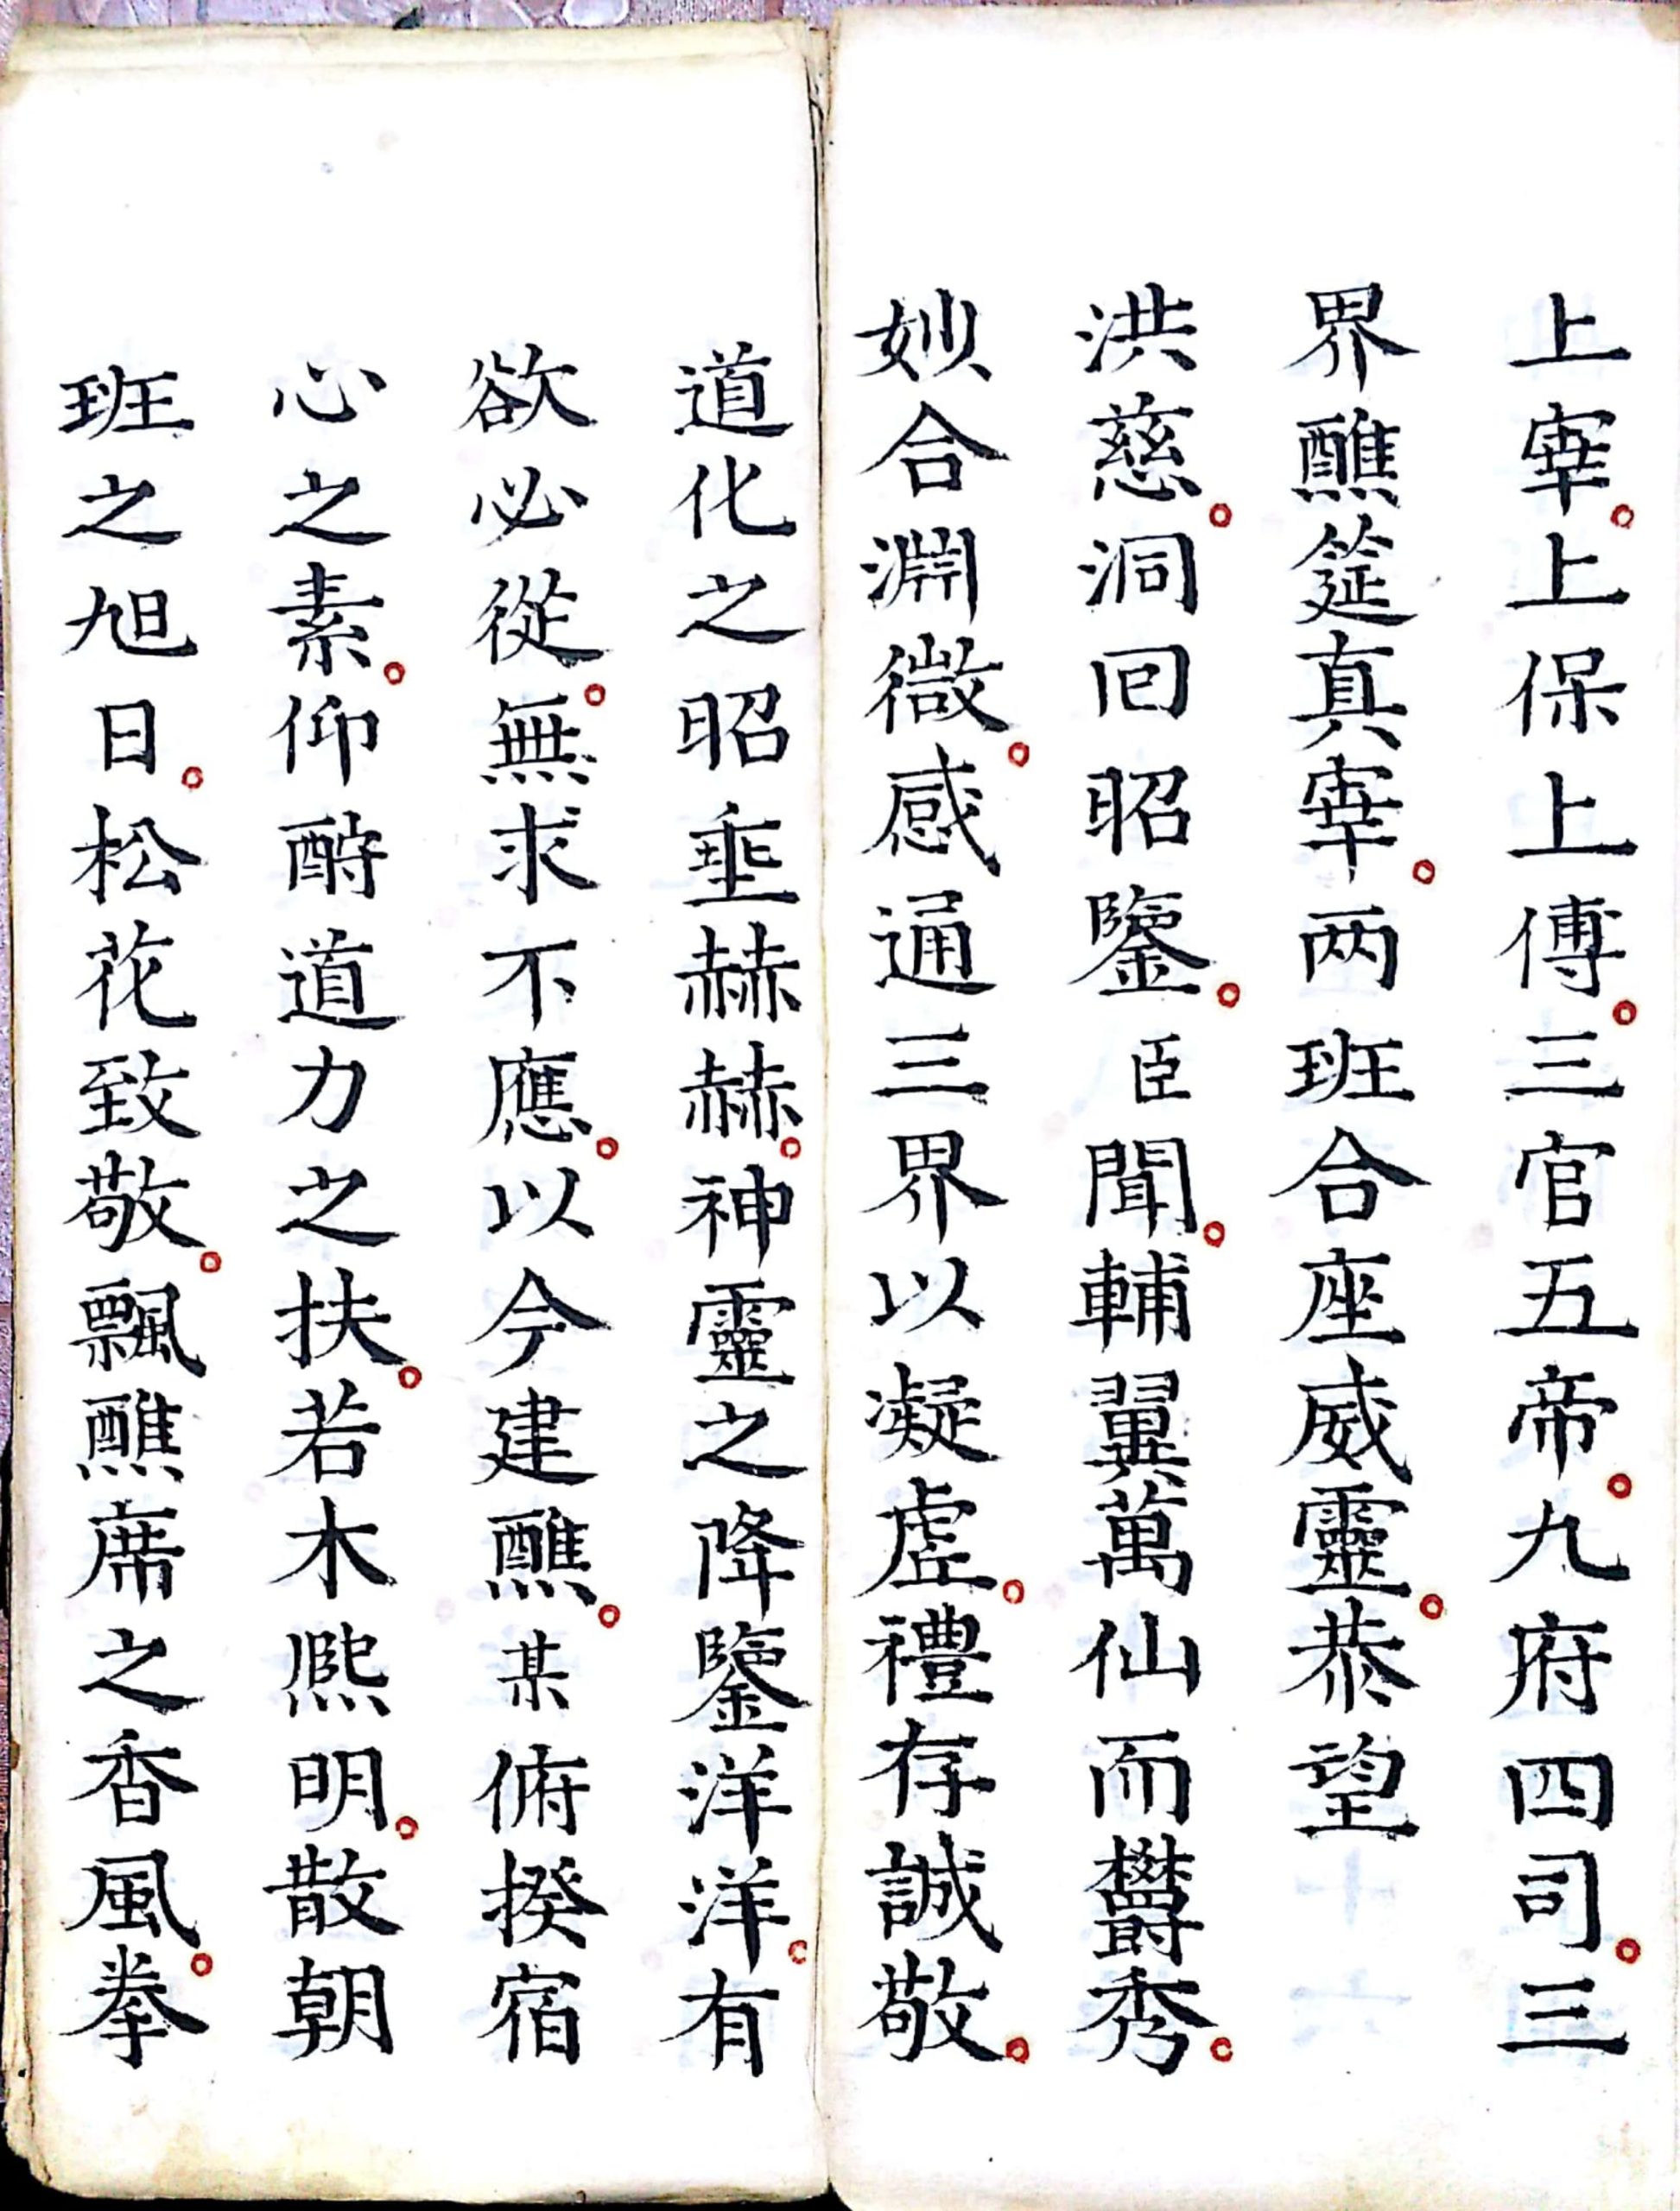 上宰。上保上傅。三官五帝。九府四司。三
界醮筵真宰。两班合座威靈。恭望
洪慈。洞回昭鑒。臣聞。輔翼萬仙而欝秀。
妙合淵微。感通三界以凝虛。禮存誠敬。
道化之昭垂赫赫。神靈之降鑒洋洋。有
欲必從。無求不應。以今建醮。某俯揆宿
心之素。仰酧道力之扶。若木熈明。散朝
班之旭日。松花致敬。飄醮席之香風。拳